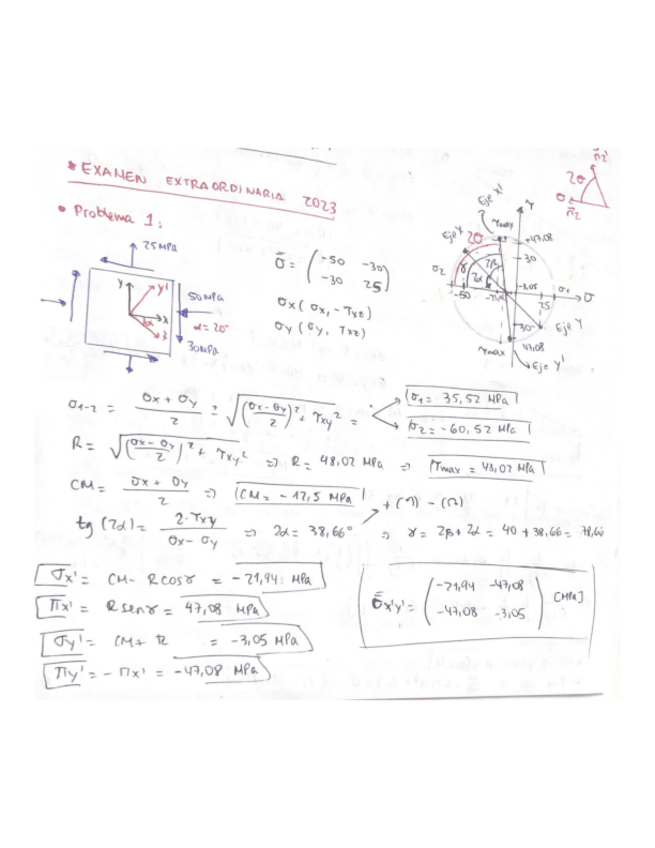 * EXAMEN EXTRAORDINARIA 2023
• Problema 1:
25 MPa
50 MPa
α = 20°
30 MPa
y y'
x
α
σ̿ = ( -50 -30
-30 25 )
σx ( σx, - τxz )
σy ( σy, τxz )
Eje X'
τ
Eje X
2θ
τmax
+47,08
30
γ
2β
2α
σ2
-50
-3,05
25
σ1
σ
-30
Eje Y
τmax
47,08
Eje Y'
2θ
σ
σ1-2 = σx + σy / 2 ± √((σx - σy / 2)² + τxy²) =
σ1 = 35,52 MPa
σ2 = -60,52 MPa
R = √((σx - σy / 2)² + τxy²) => R = 48,02 MPa => τmax = 48,02 MPa
CM = σx + σy / 2 => CM = -12,5 MPa
tg (2α) = 2·τxy / σx - σy => 2α = 38,66°
=> γ = 2β + 2α = 40 + 38,66 = 78,66
σx' = CM - R cos γ = -21,94 MPa
πx' = R sen γ = 47,08 MPa
σy' = CM + R = -3,05 MPa
πy' = - πx' = -47,08 MPa
σ̿x'y' = ( -21,94 -47,08
-47,08 -3,05 ) [MPa]